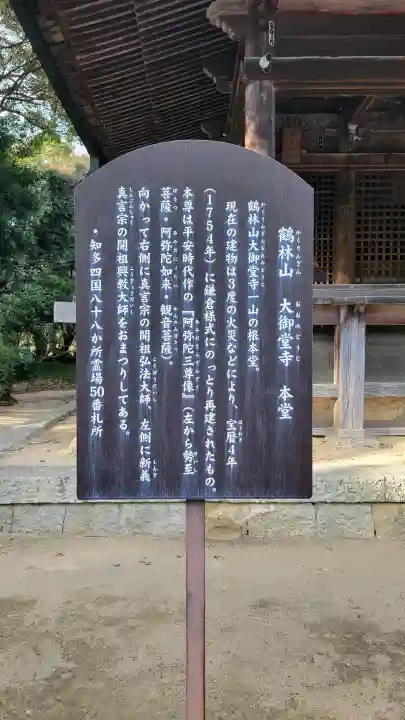 鶴林山　大御堂寺　本堂
鶴林山大御堂寺一山の根本堂。
現在の建物は3度の火災などにより、宝暦4年
(1754年)に鎌倉様式にのっとり再建されたもの。
本尊は平安時代作の『阿弥陀三尊像』(左から勢至
菩薩・阿弥陀如来・観音菩薩)。
向かって右側に真言宗の開祖弘法大師、左側に新義
真言宗の開祖興教大師をおまつりしてある。
・知多四国八十八か所霊場50番札所